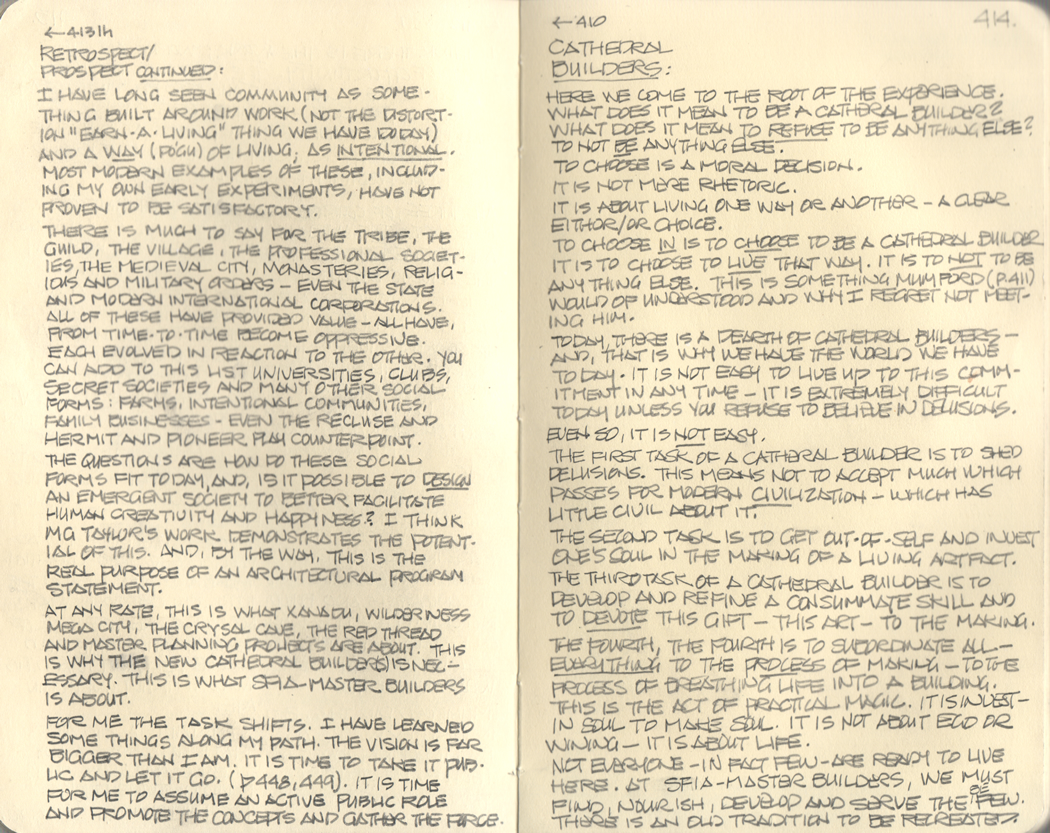 ←413 lh
RETROSPECT/
PROSPECT CONTINUED:
I HAVE LONG SEEN COMMUNITY AS SOME-
THING BUILT AROUND WORK (NOT THE DISTORT-
ION "EARN-A-LIVING" THING WE HAVE TODAY)
AND A WAY (POGU) OF LIVING; AS INTENTIONAL.
MOST MODERN EXAMPLES OF THESE, INCLUD-
ING MY OWN EARLY EXPERIMENTS, HAVE NOT
PROVEN TO BE SATISFACTORY.
THERE IS MUCH TO SAY FOR THE TRIBE, THE
GUILD, THE VILLAGE, THE PROFESSIONAL SOCIET-
IES, THE MEDIEVAL CITY, MONASTERIES, RELIG-
IOUS AND MILITARY ORDERS - EVEN THE STATE
AND MODERN INTERNATIONAL CORPORATIONS.
ALL OF THESE HAVE PROVIDED VALUE - ALL HAVE,
FROM TIME-TO-TIME BECOME OPPRESSIVE.
EACH EVOLVED IN REACTION TO THE OTHER. YOU
CAN ADD TO THIS LIST UNIVERSITIES, CLUBS,
SECRET SOCIETIES AND MANY OTHER SOCIAL
FORMS: FARMS, INTENTIONAL COMMUNITIES,
FAMILY BUSINESSES - EVEN THE RECLUSE AND
HERMIT AND PIONEER PLAY COUNTERPOINT.
THE QUESTIONS ARE HOW DO THESE SOCIAL
FORMS FIT TODAY, AND, IS IT POSSIBLE TO DESIGN
AN EMERGENT SOCIETY TO BETTER FACILITATE
HUMAN CREATIVITY AND HAPPINESS? I THINK
MG TAYLOR'S WORK DEMONSTRATES THE POTENT-
IAL OF THIS. AND, BY THE WAY, THIS IS THE
REAL PURPOSE OF AN ARCHITECTURAL PROGRAM
STATEMENT.
AT ANY RATE, THIS IS WHAT XANADU, WILDERNESS
MEGA CITY, THE CRYSAL CAVE, THE RED THREAD
AND MASTER PLANNING PROJECTS ARE ABOUT. THIS
IS WHY THE NEW CATHEDRAL BUILDERS) IS NEC-
ESSARY. THIS IS WHAT SFIA-MASTER BUILDERS
IS ABOUT.
FOR ME THE TASK SHIFTS. I HAVE LEARNED
SOME THINGS ALONG MY PATH. THE VISION IS FAR
BIGGER THAN I AM. IT IS TIME TO TAKE IT PUB-
LIC AND LET IT GO. (p448, 449). IT IS TIME
FOR ME TO ASSUME AN ACTIVE PUBLIC ROLE
AND PROMOTE THE CONCEPTS AND GATHER THE FORCE.
←410
414.
CATHEDRAL
BUILDERS:
HERE WE COME TO THE ROOT OF THE EXPERIENCE.
WHAT DOES IT MEAN TO BE A CATHERAL BUILDER?
WHAT DOES IT MEAN TO REFUSE TO BE ANYTHING ELSE?
TO NOT BE ANYTHING ELSE.
TO CHOOSE IS A MORAL DECISION.
IT IS NOT MERE RHETORIC.
IT IS ABOUT LIVING ONE WAY OR ANOTHER - A CLEAR
EITHOR/OR CHOICE.
TO CHOOSE IN IS TO CHOOSE TO BE A CATHEDRAL BUILDER
IT IS TO CHOOSE TO LIVE THAT WAY. IT IS TO NOT TO BE
ANY THING ELSE. THIS IS SOMETHING MUMFORD (P.411)
WOULD OF UNDERSTOOD AND WHY I REGRET NOT MEET-
ING HIM.
TODAY, THERE IS A DEARTH OF CATHEDRAL BUILDERS -
AND, THAT IS WHY WE HAVE THE WORLD WE HAVE
TODAY. IT IS NOT EASY TO LIVE UP TO THIS COMM-
ITMENT IN ANY TIME - IT IS EXTREMELY DIFFICULT
TODAY UNLESS YOU REFUSE TO BELIEVE IN DELUSIONS.
EVEN SO, IT IS NOT EASY.
THE FIRST TASK OF A CATHERAL BUILDER IS TO SHED
DELUSIONS. THIS MEANS NOT TO ACCEPT MUCH WHICH
PASSES FOR MODERN CIVILIZATION - WHICH HAS
LITTLE CIVIL ABOUT IT.
THE SECOND TASK IS TO GET OUT-OF-SELF AND INVEST
ONE'S SOUL IN THE MAKING OF A LIVING ARTFACT.
THE THIRD TASK OF A CATHEDRAL BUILDER IS TO
DEVELOP AND REFINE A CONSUMMATE SKILL AND
TO DEVOTE THIS GIFT - THIS ART - TO THE MAKING.
THE FOURTH, THE FOURTH IS TO SUBORDINATE ALL -
EVERYTHING TO THE PROCESS OF MAKING - TO THE
PROCESS OF BREATHING LIFE INTO A BUILDING.
THIS IS THE ACT OF PRACTICAL MAGIC. IT IS INVEST-
IN SOUL TO MAKE SOUL. IT IS NOT ABOUT EGO OR
WINING - IT IS ABOUT LIFE.
NOT EVERYONE - IN FACT FEW - ARE READY TO LIVE
HERE. AT SFIA-MASTER BUILDERS, WE MUST
FIND, NOURISH, DEVELOP AND SERVE THE FEW.
THERE IS AN OLD TRADITION TO BE RECREATED.